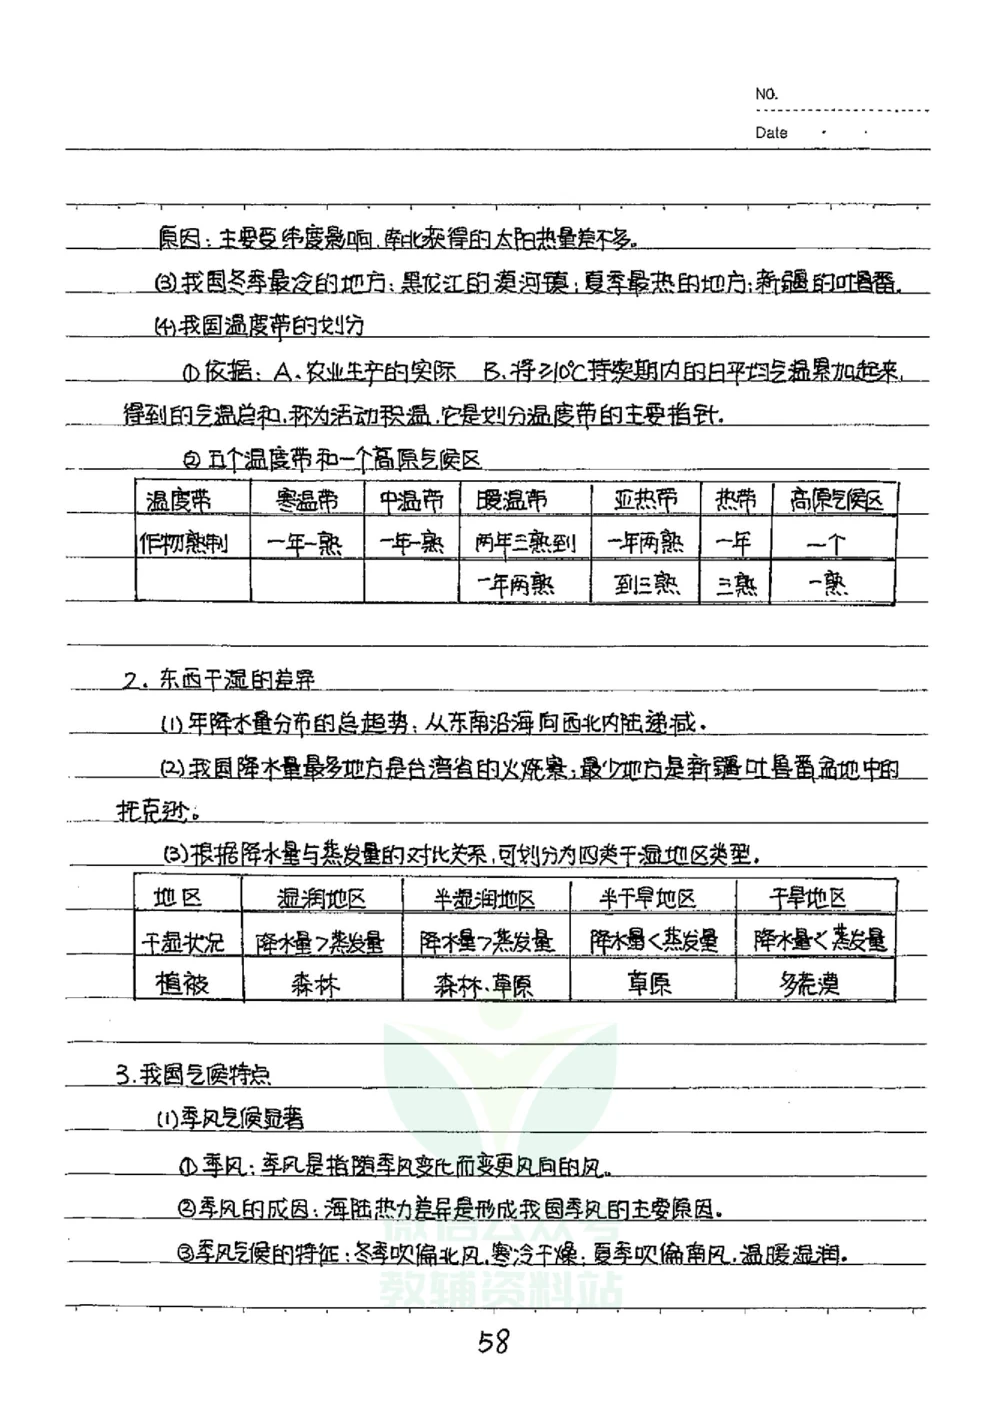 NO.
Date
原因：主要受纬度影响，南北获得的太阳热量差不多。
(3)我国冬季最冷的地方：黑龙江的漠河镇；夏季最热的地方：新疆的吐鲁番。
(4)我国温度带的划分
①依据：A、农业生产的实际 B、将≥10℃持续期内的日平均气温累加起来，
得到的气温总和，称为活动积温，它是划分温度带的主要指针．
②五个温度带和一个高原气候区
温度带 寒温带 中温带 暖温带 亚热带 热带 高原气候区
作物熟制 一年一熟 一年一熟 两年三熟到 一年两熟 一年 一个
一年两熟 到三熟 三熟 一熟
2．东西干湿的差异
(1)年降水量分布的总趋势：从东南沿海向西北内陆递减．
(2)我国降水量最多地方是台湾省的火烧寮；最少地方是新疆吐鲁番盆地中的
托克逊。
(3)根据降水量与蒸发量的对比关系，可划分为四类干湿地区类型．
地区 湿润地区 半湿润地区 半干旱地区 干旱地区
干湿状况 降水量>蒸发量 降水量>蒸发量 降水量<蒸发量 降水量<蒸发量
植被 森林 森林、草原 草原 多荒漠
3．我国气候特点
(1)季风气候显著
①季风：季风是指随季风变化而变更风向的风。
②季风的成因：海陆热力差异是形成我国季风的主要原因．
③季风气候的特征：冬季吹偏北风，寒冷干燥；夏季吹偏南风，温暖湿润．
微信公众号
教辅资料站
58